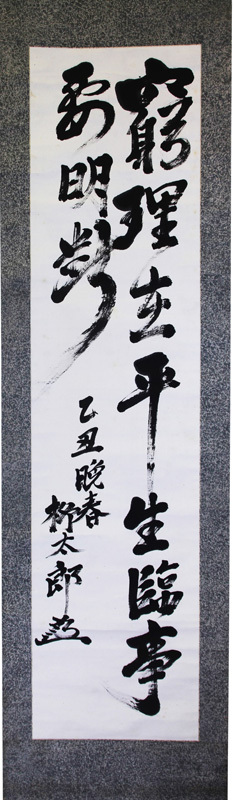 窮理在平生臨事
要明断
乙丑晩春
柳太郎書